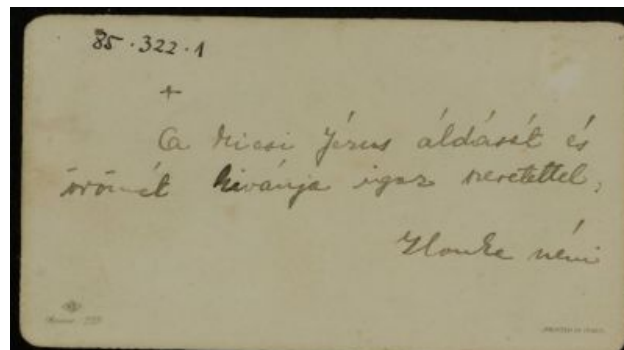 85.322.1
+
A kicsi Jézus áldását és
örömét kívánja igaz szeretettel,
Ilonka néni
PRINTED IN ITALY